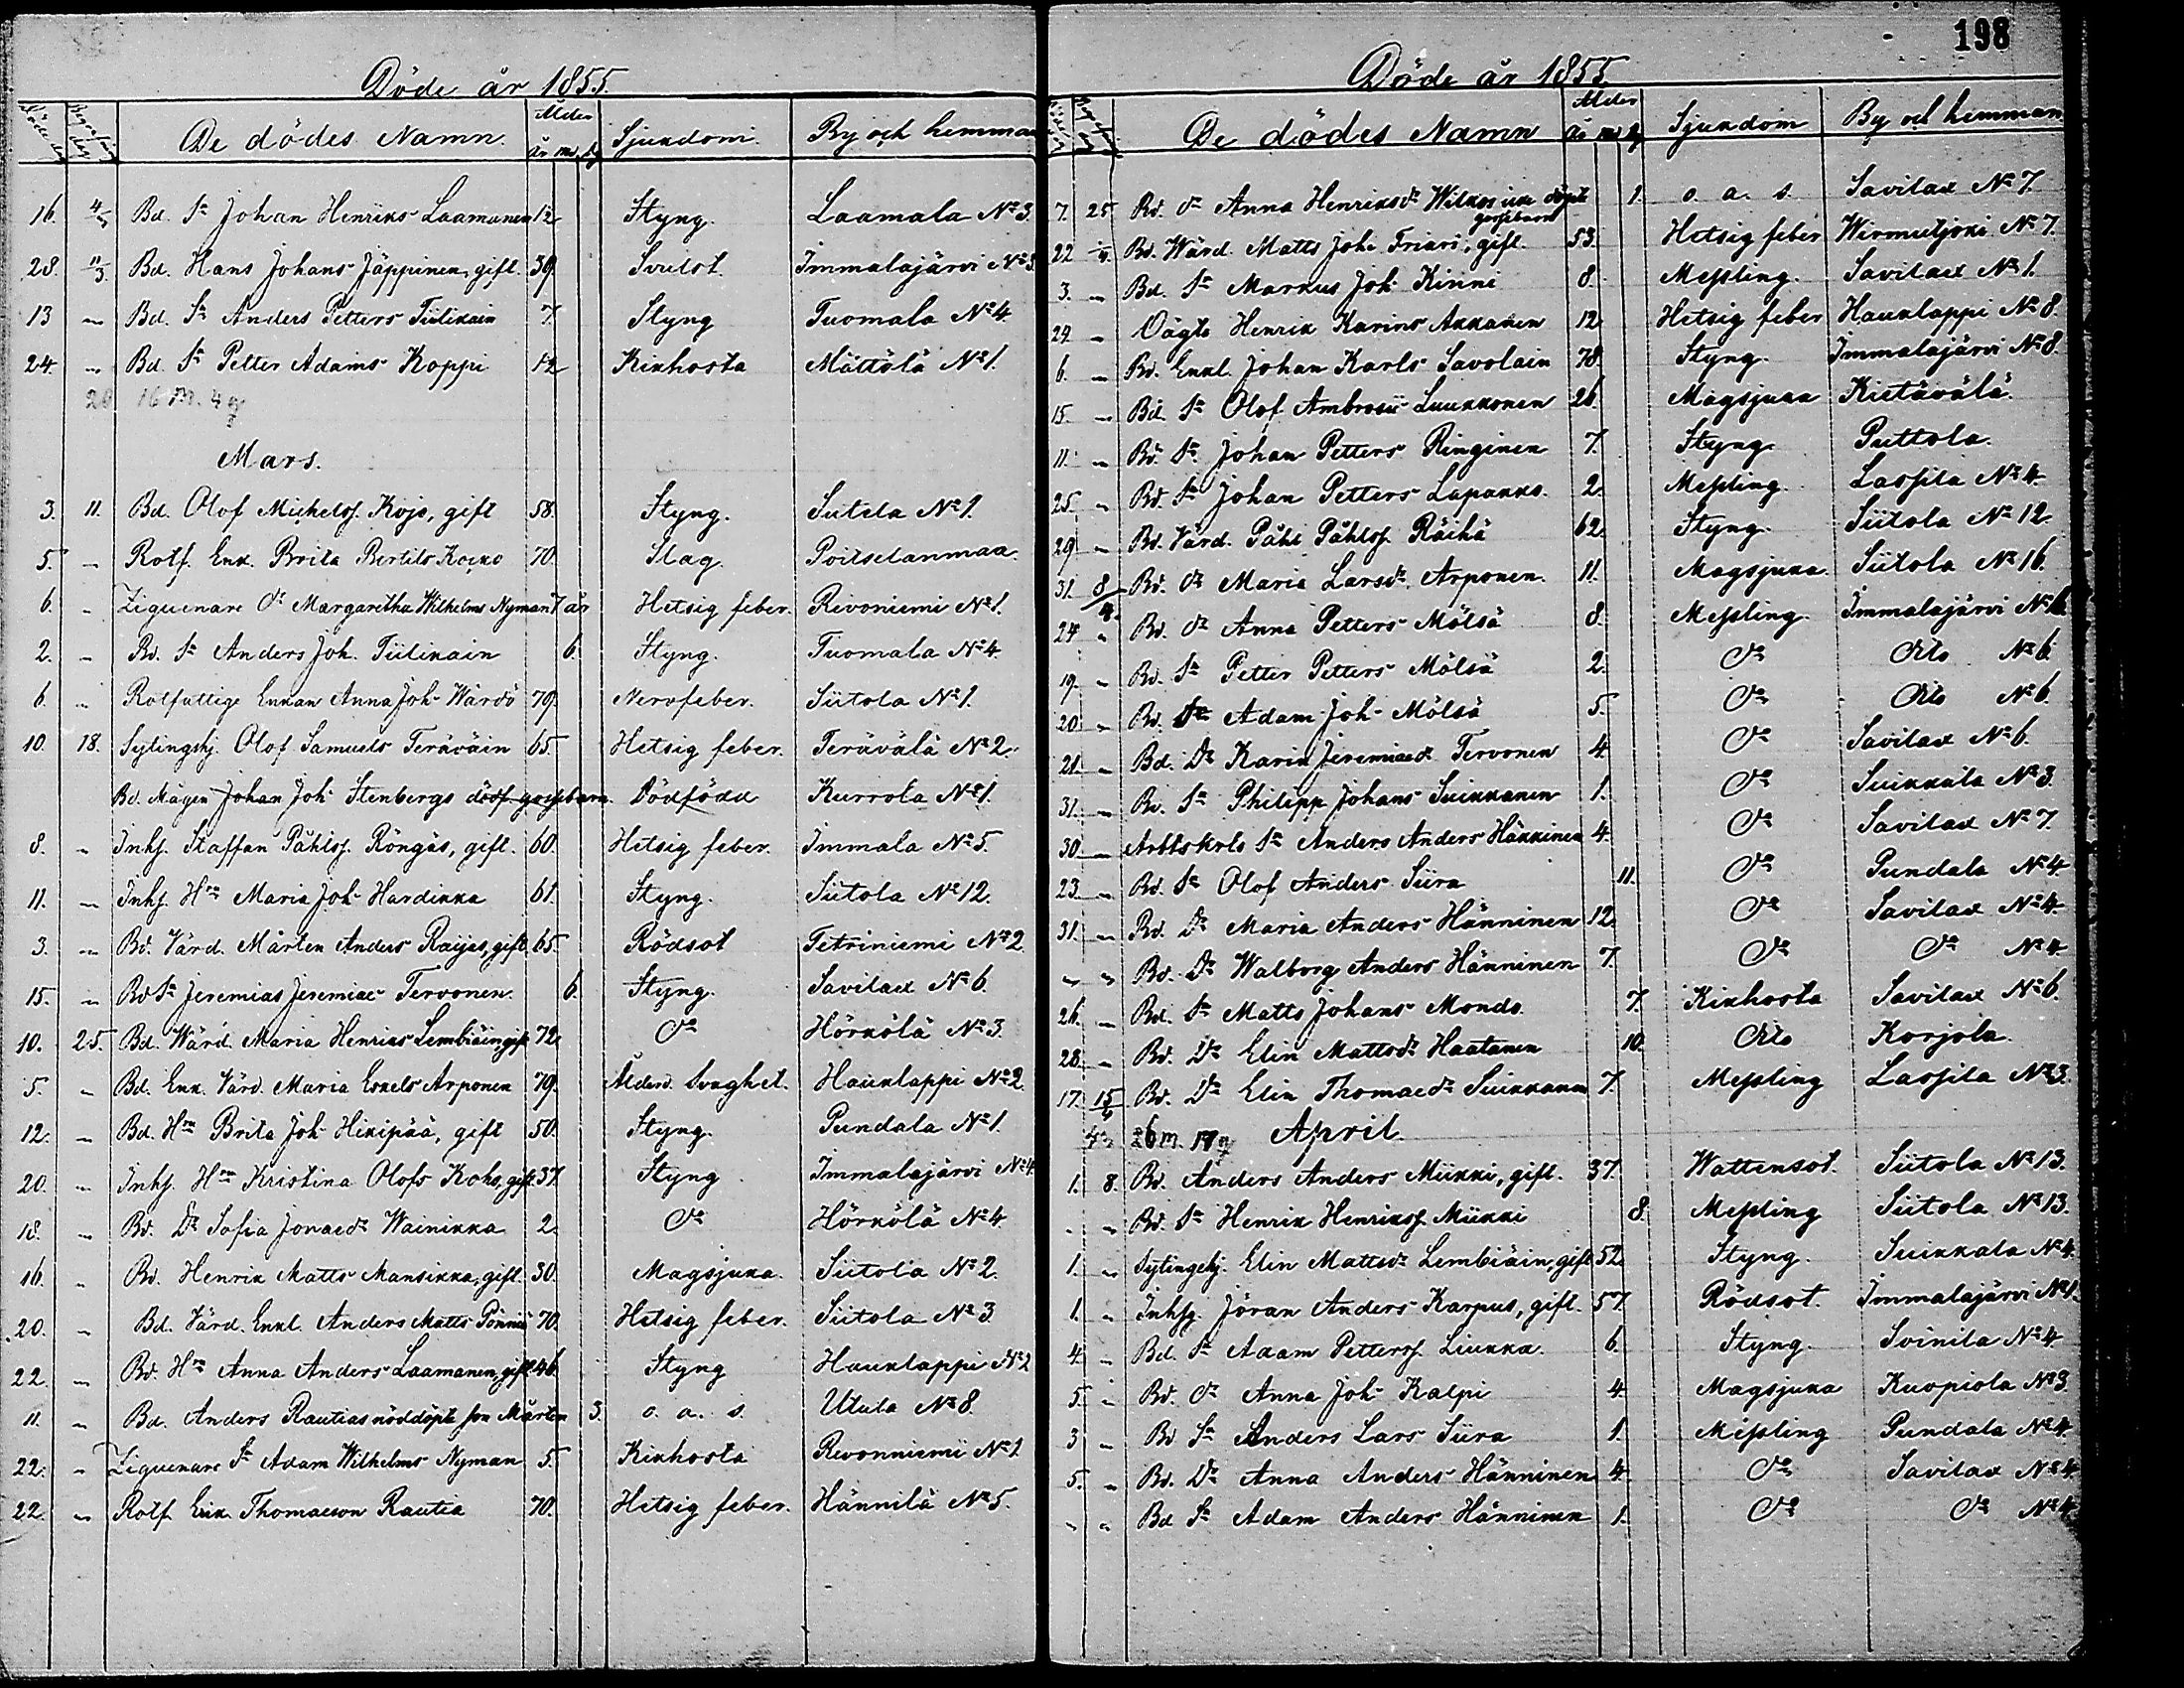 Döde år 1855.
Döde dag Begrafn. dag De dödes Namn. Ålder år m. dg Sjukdom. By och hemman
16. 4/3 Bd. Sn Johan Henriks Laamanen 12 Styng. Laamala No 3.
28. 11/3. Bd. Hans Johans Jäppinen, gift. 39. Svulst. Immalajärvi No 3.
13 " Bd. Sn Anders Petters Tiilikain 7. Styng Tuomala No 4
24. " Bd. Sn Petter Adams Koppi 12 Kikhosta Mättölä No 1.
20 16 m. 4 q
Mars.
3. 11. Bd. Olof Michelss. Kojo, gift 58. Styng. Sutela No 1.
5. " Rotf. Enk. Brita Bertils Koiko 70. Slag. Poitselanmaa.
6. " Ziguenare Dr Margaretha Wilhelms Nyman 7 år Hetsig feber. Rivoniemi No 1.
2. " Bd. Sn Anders Joh. Tiilikain 6. Styng. Tuomala No 4.
6. " Rotfattige Enkan Anna Joh Wärdö 79. Nervfeber. Siitola No 1.
10. 18. Sytingshj. Olof Samuels Teräväin 65 Hetsig feber. Terävälä No 2.
Bd. Mågen Johan Joh Stenbergs dödf. gossebarn. Dödfödd Kurrola No 1.
8. " Inhs. Staffan Påhlss. Röngäs, gift. 60. Hetsig feber. Immala No 5.
11. " Inhs. Hru Maria Joh Hardikka 61. Styng. Siitola No 12.
3. " Bd. Värd. Mårten Anders Raijas, gift 65 Rödsot Tetriniemi No 2
15. " Bd Sn Jeremias Jeremiae Tervonen. 6. Styng. Savilax No 6.
10. 25. Bd. Wärd. Maria Henriks Lembiäin gift 72. Do Hörkölä No 3.
5. " Bd. Enk. Värd. Maria Eskels Arponen 79. Ålderd. Svaghet. Hauklappi No 2
12. " Bd. Hru Brita Joh Hikipää, gift 50. Styng. Pundala No 1.
20. " Inhs. Hru Kristina Olofs Koho, gift. 37. Styng Immalajärvi No 4
18. " Bd. Dr Sofia Jonaedr Wainikka 2. Do Hörkölä No 4
16. " Bd. Henrik Matts Mansikka, gift. 30. Magsjuka. Siitola No 2.
20. " Bd. Värd. Enkl. Anders Matts Pönniä 70. Hetsig feber. Siitola No 3
22. " Bd. Hru Anna Anders Laamanen, gift 46. Styng Hauklappi No 2
11. " Bd. Anders Rautias nöddöpte son Mårten 3. o. a. s. Utula No 8.
22. " Ziguenare Sn Adam Wilhelms Nyman 5. Kikhosta Revonniemi No 1
22. " Rotf. Erik Thomaeson Rautia 70. Hetsig feber. Hännilä No 5.
198
Döde år 1855
De dödes Namn Ålder år m dg Sjukdom By och hemman
7. 25 Bd. Dr Anna Henriksdr Wilkos icke döpte gossebarn 1. o. a. s. Savilax No 7.
22 " Bd. Wärd. Matts Joh. Friari, gift. 53. Hetsig feber Wirmutjoki No 7.
3. " Bd. Sn Markus Joh Kinni 8. Messling. Savilax No 1.
24. " Oägte Henrik Karins Akkanen 12 Hetsig feber Hauklappi No 8.
6. " Bd. Enkl. Johan Karls Savolain 78. Styng. Immalajärvi No 8.
15. " Bd. Sn Olof Ambrosii Luukkonen 26. Magsjuka Kietävälä.
11. " Bd. Sn Johan Petters Ringinen 7. Styng Puttola.
25 " Bd. Sn Johan Petters Lapakko. 2. Messling. Lassila No 4
29 " Bd. Värd. Påhl Påhlss. Räihä 62. Styng. Siitola No 12.
31. 8/4. Bd. Dr Maria Larsdr Arponen. 11. Magsjuka. Siitola No 16.
24 " Bd. Dr Anna Petters Mölsä 8. Messling. Immalajärvi No 6
19. " Bd. Sn Petter Petters Mölsä 2. Do Dito No 6.
20 " Bd. Sn Adam Joh Mölsä 5. Do Dito No 6.
21. " Bd. Dr Karin Jeremiaedr Tervonen 4. Do Savilax No 6.
31. " Bd. Sn Philipp Johans Suikkanen 1. Do Suikkala No 3.
30. " Arbtskrls Sn Anders Anders Häkkinen 4. Do Savilax No 7.
23. " Bd. Sn Olof Anders Siira 11. Do Pundala No 4
31. " Bd. Dr Maria Anders Hänninen 12. Do Savilax No 4.
" " Bd. Dr Walborg Anders Hänninen 7. Do Do No 4.
26. " Bd. Sn Matts Johans Mondo. 7. Kikhosta Savilax No 6.
28. " Bd. Dr Elin Mattsdr Haatanen 10. Dito Korjola.
17. 15/4 Bd. Dr Elin Thomaedr Suikkanen 7. Messling Lassila No 3.
26 m. 17 q April.
1. 8. Bd. Anders Anders Miikki, gift. 37. Wattensot. Siitola No 13.
" " Bd. Sn Henrik Henrikss. Miikki 8. Messling Siitola No 13.
1. " Sytingshj. Elin Mattsdr Lembiäin, gift 52. Styng. Suikkala No 4.
1. " Inhsg. Jöran Anders Karpus, gift. 57. Rödsot. Immalajärvi No 1.
4. " Bd. Sn Adam Petterss. Liukka. 6. Styng. Soinila No 4
5. " Bd. Dr Anna Joh Kalpi 4. Magsjuka Kuopiola No 3.
3 " Bd Sn Anders Lars Siira 1. Messling Pundala No 4
5. " Bd. Dr Anna Anders Hänninen 4. Do Savilax No 4
" " Bd Sn Adam Anders Hänninen 1. Do Do No 4.